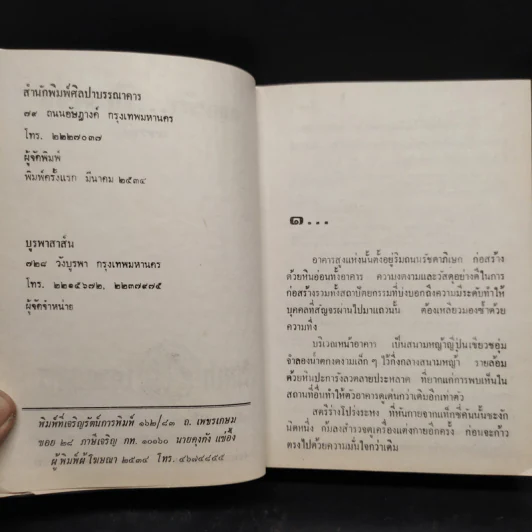 สำนักพิมพ์ศิลปาบรรณาคาร
๗๙ ถนนอัษฎางค์ กรุงเทพมหานคร
โทร. ๒๒๒๗๐๓๗
ผู้จัดพิมพ์
พิมพ์ครั้งแรก มีนาคม ๒๕๓๔
บูรพาสาส์น
๗๒๘ วังบูรพา กรุงเทพมหานคร
โทร. ๒๒๑๕๖๗๒, ๒๒๓๗๙๗๕
ผู้จัดจำหน่าย
พิมพ์ที่เจริญรัตน์การพิมพ์ ๑๖๒/๘๓ ถ. เพชรเกษม
ซอย ๒๘ ภาษีเจริญ กท. ๑๐๑๖๐ นายคุงกัง แซ่อึ้ง
ผู้พิมพ์ผู้โฆษณา ๒๕๓๔ โทร. ๔๖๗๔๘๕๕
๑...
อาคารสูงแห่งนั้นตั้งอยู่ริมถนนรัชดาภิเษก ก่อสร้าง
ด้วยหินอ่อนทั้งอาคาร ความงดงามและวัสดุอย่างดีในการ
ก่อสร้างรวมทั้งสถาปัตยกรรมที่บ่งบอกถึงความมีระดับทำให้
บุคคลที่สัญจรผ่านไปมาแถวนั้น ต้องเหลียวมองซ้ำด้วย
ความทึ่ง
บริเวณหน้าอาคาร เป็นสนามหญ้าญี่ปุ่นเขียวชอุ่ม
จำลองน้ำตกงดงามเล็ก ๆ ไว้ที่กลางสนามหญ้า รายล้อม
ด้วยหินปะการังลวดลายประหลาด ที่ยากแก่การพบเห็นใน
สถานที่อื่นทำให้ตัวอาคารดูเด่นกว่าตึกอีกเท่าตัว
สตรีร่างโปร่งระหง ที่หันกายจากแท็กซี่คันนั้นชะงัก
นิดหนึ่ง ก้มลงสำรวจดูเครื่องแต่งกายอีกครั้ง ก่อนจะก้าว
ตรงไปด้วยความมั่นใจกว่าเดิม